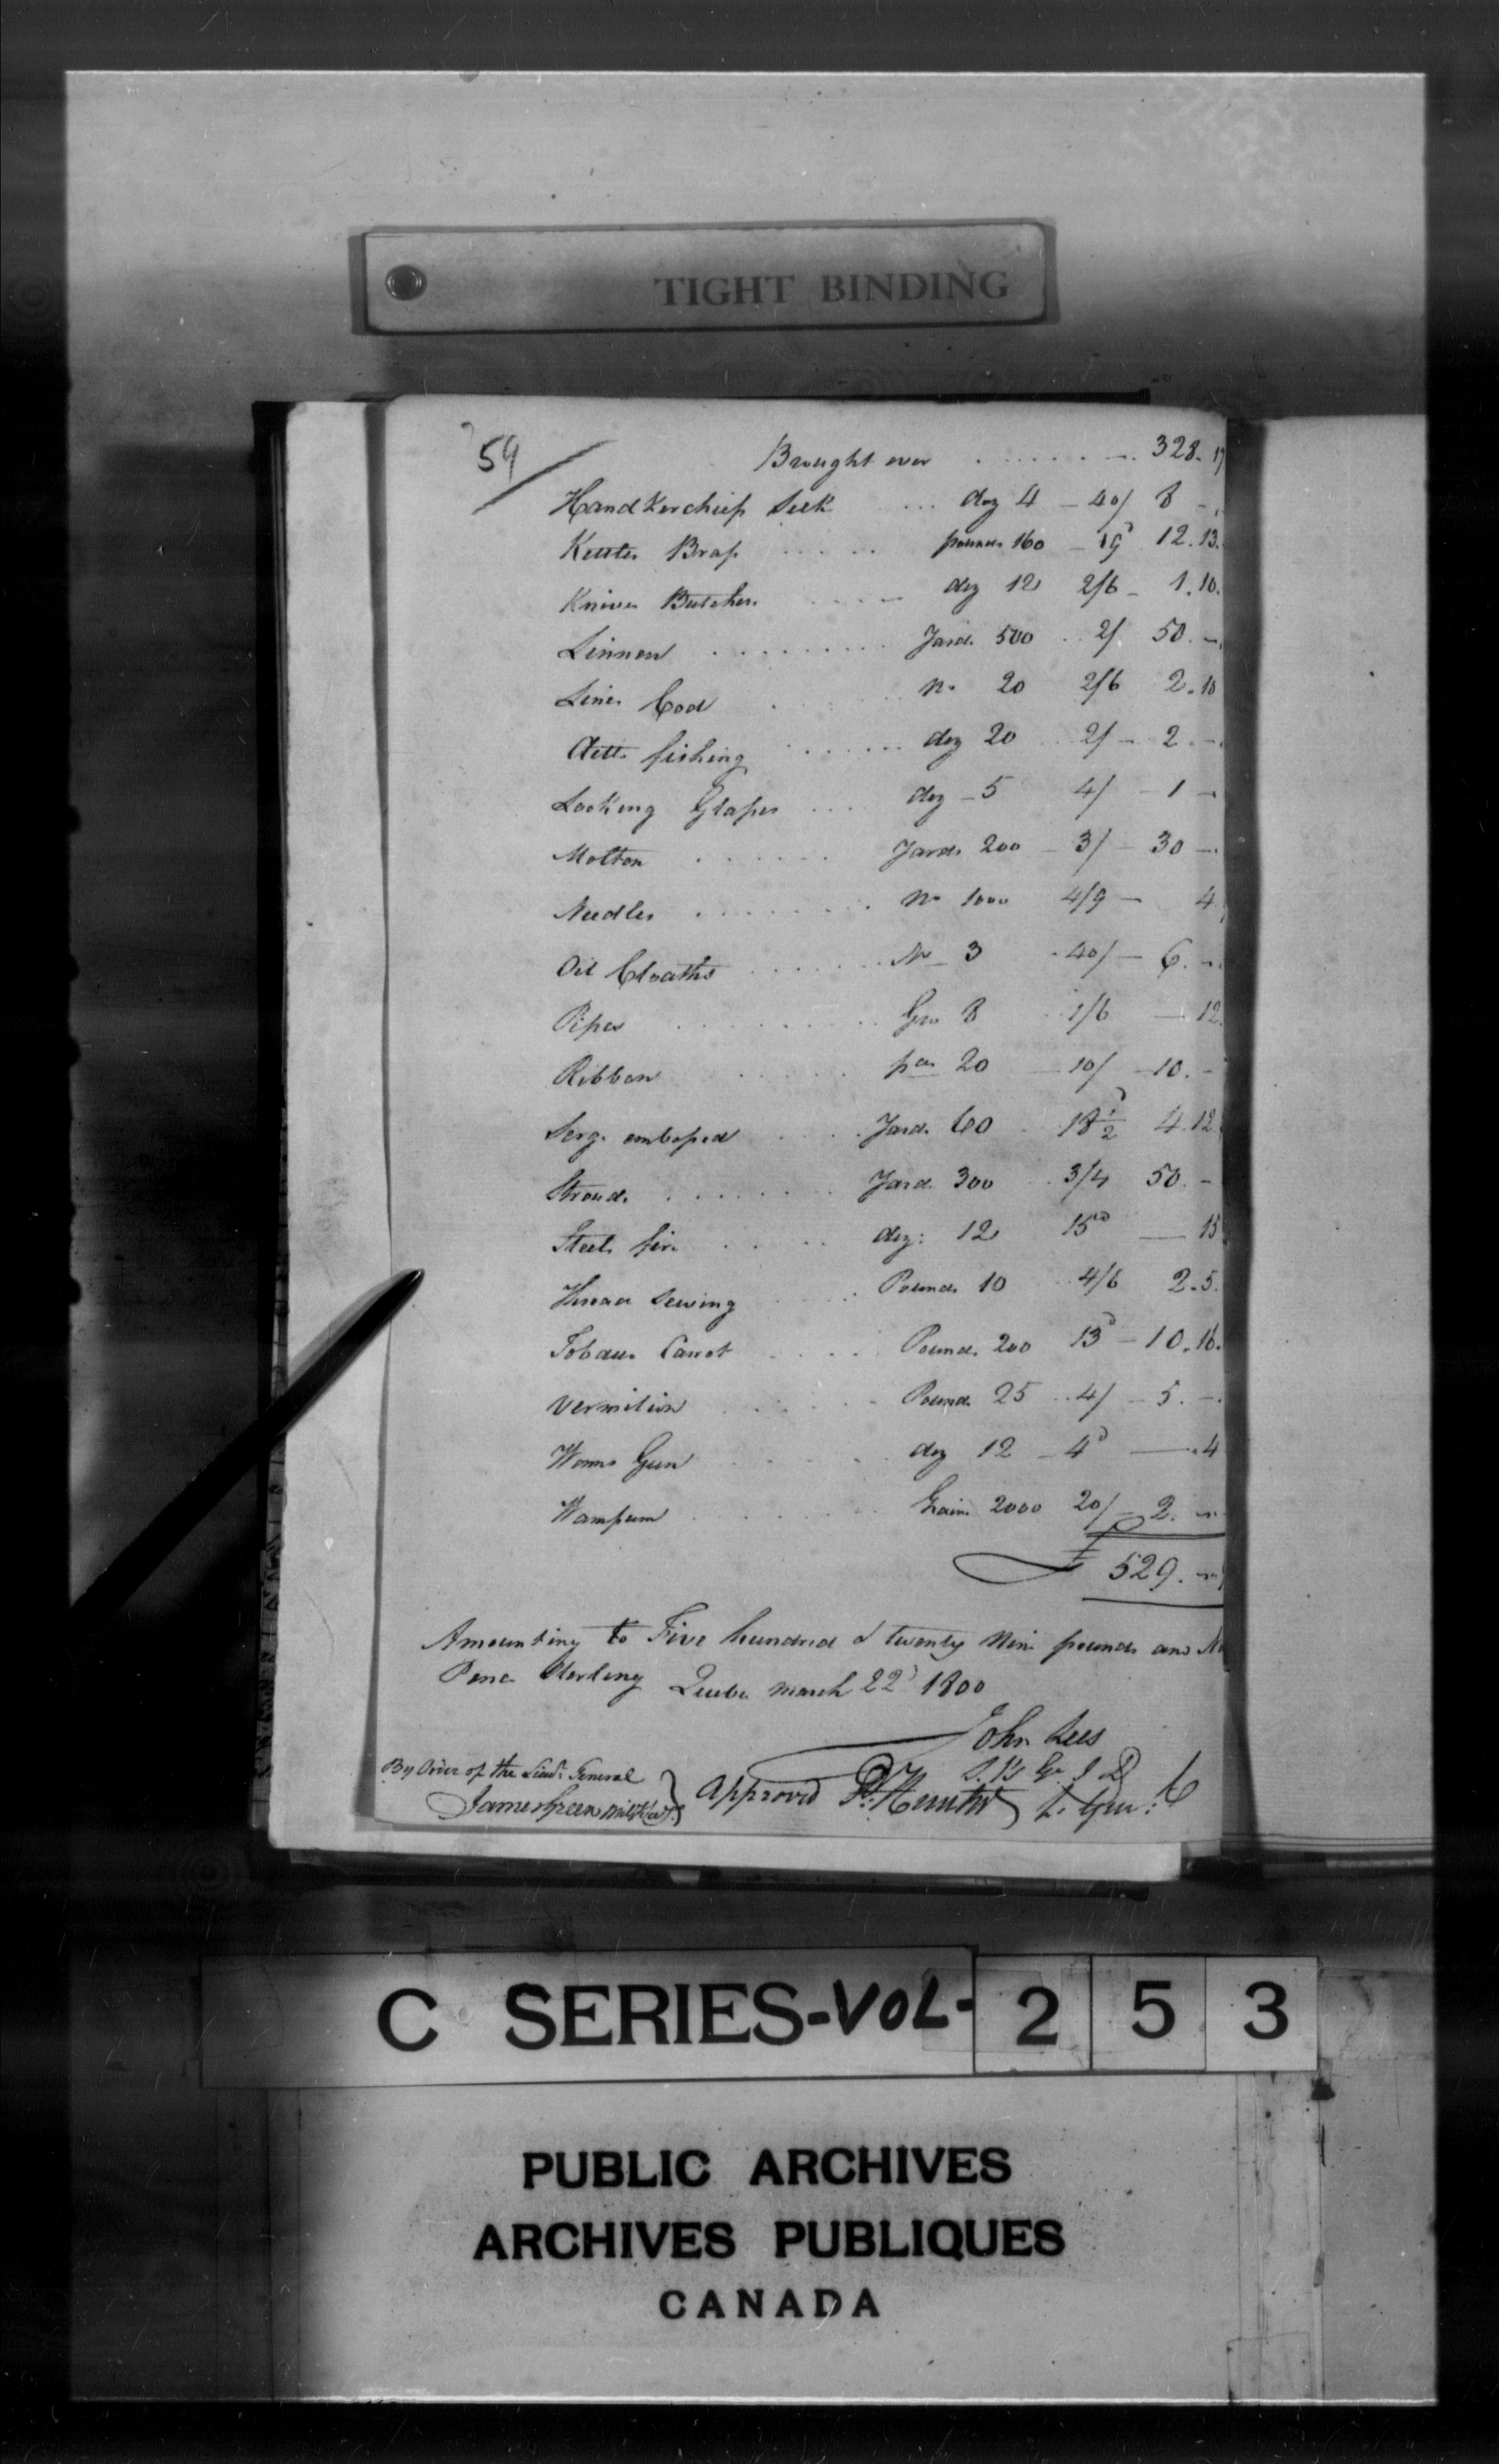 TIGHT BINDING
59
Brought over . . . . . . 328. 17
Handkerchiefs Silk ... doz 4 - 40/ 8 -
Kettles Brass . . . . . pounds 160 - 19d 12. 13.
Knives Butchers . . . . doz 12 2/6 - 1. 10.
Linnen . . . . . . . . Yards 500 . . 2/. 50. -
Lines Cod . . . No 20 2/6 2. 10
Ditto fishing . . . . . . doz 20 2/ - 2. -
Looking Glasses . . . . doz - 5 4/ - 1 -
Molton . . . . . . Yards 200 - 3/ - 30 -
Needles . . . . . . . No 1000 4/9 - 4
Oil Cloaths . . . . . . No 3 - 40/ - 6. -
Pipes . . . . . . . . Gro 8 1/6 - 12
Ribbon . . . . pces 20 10/ - 10. -
Serge embossed . . . Yards 60 18 1/2d 4. 12
Strouds . . . . . . . Yards 300 . . 3/4 50. -
Steels fire . . . . . doz: 12 15d - 15
Thread Sewing . . . Pounds 10 4/6 2. 5.
Tobacco Carrot . . . . Pounds 200 13d - 10. 16.
Vermilion . . . . . . Pounds 25 . . 4/ - 5. -
Worms Gun . . . . . doz 12 - 4d - 4
Wampum . . . . . . . Grains 2000 20/ - 2. -
£ 529. -
Amounting to Five hundred & twenty Nine pounds and
Pence Sterling Quebec march 22d 1800
John Lees
S. K. G. I. D
By Order of the Lieut. General
James Green Milty. Secy.
Approved P. Hunter Lt. Gen:
C SERIES-VOL- 2 5 3
PUBLIC ARCHIVES
ARCHIVES PUBLIQUES
CANADA